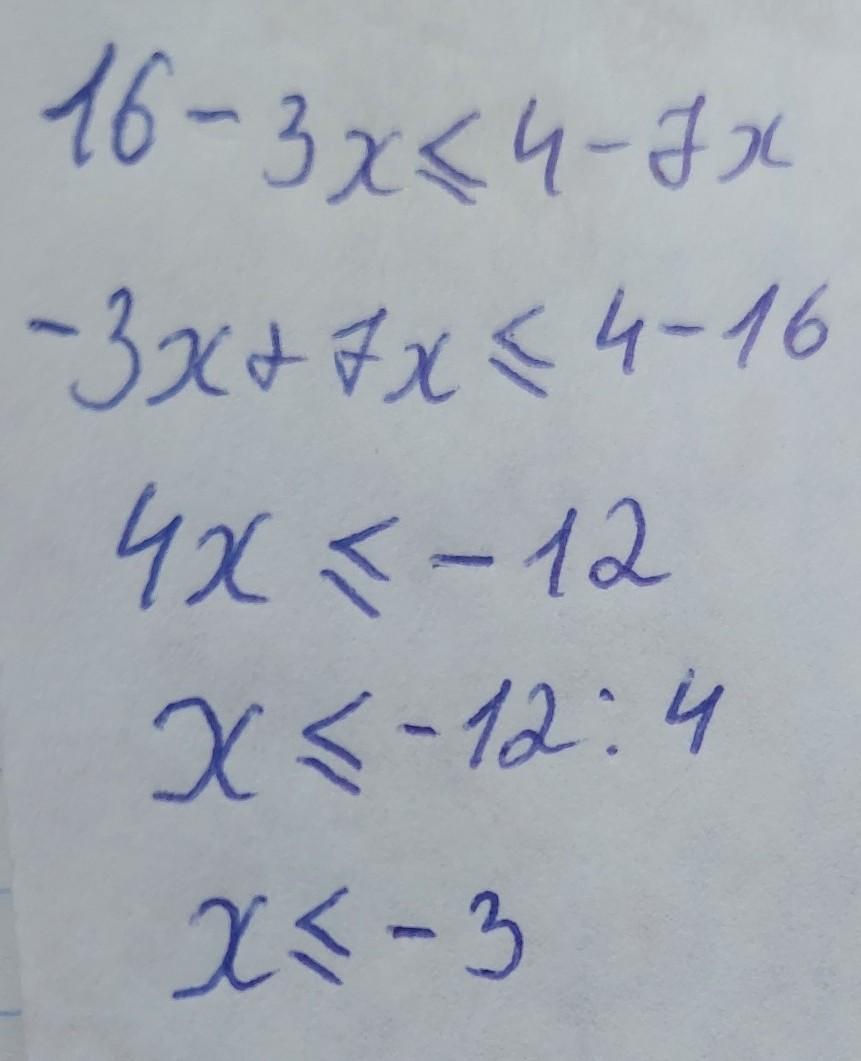 16 - 3x ⩽ 4 - 7x
-3x + 7x ⩽ 4 - 16
4x ⩽ - 12
x ⩽ - 12 : 4
x ⩽ - 3